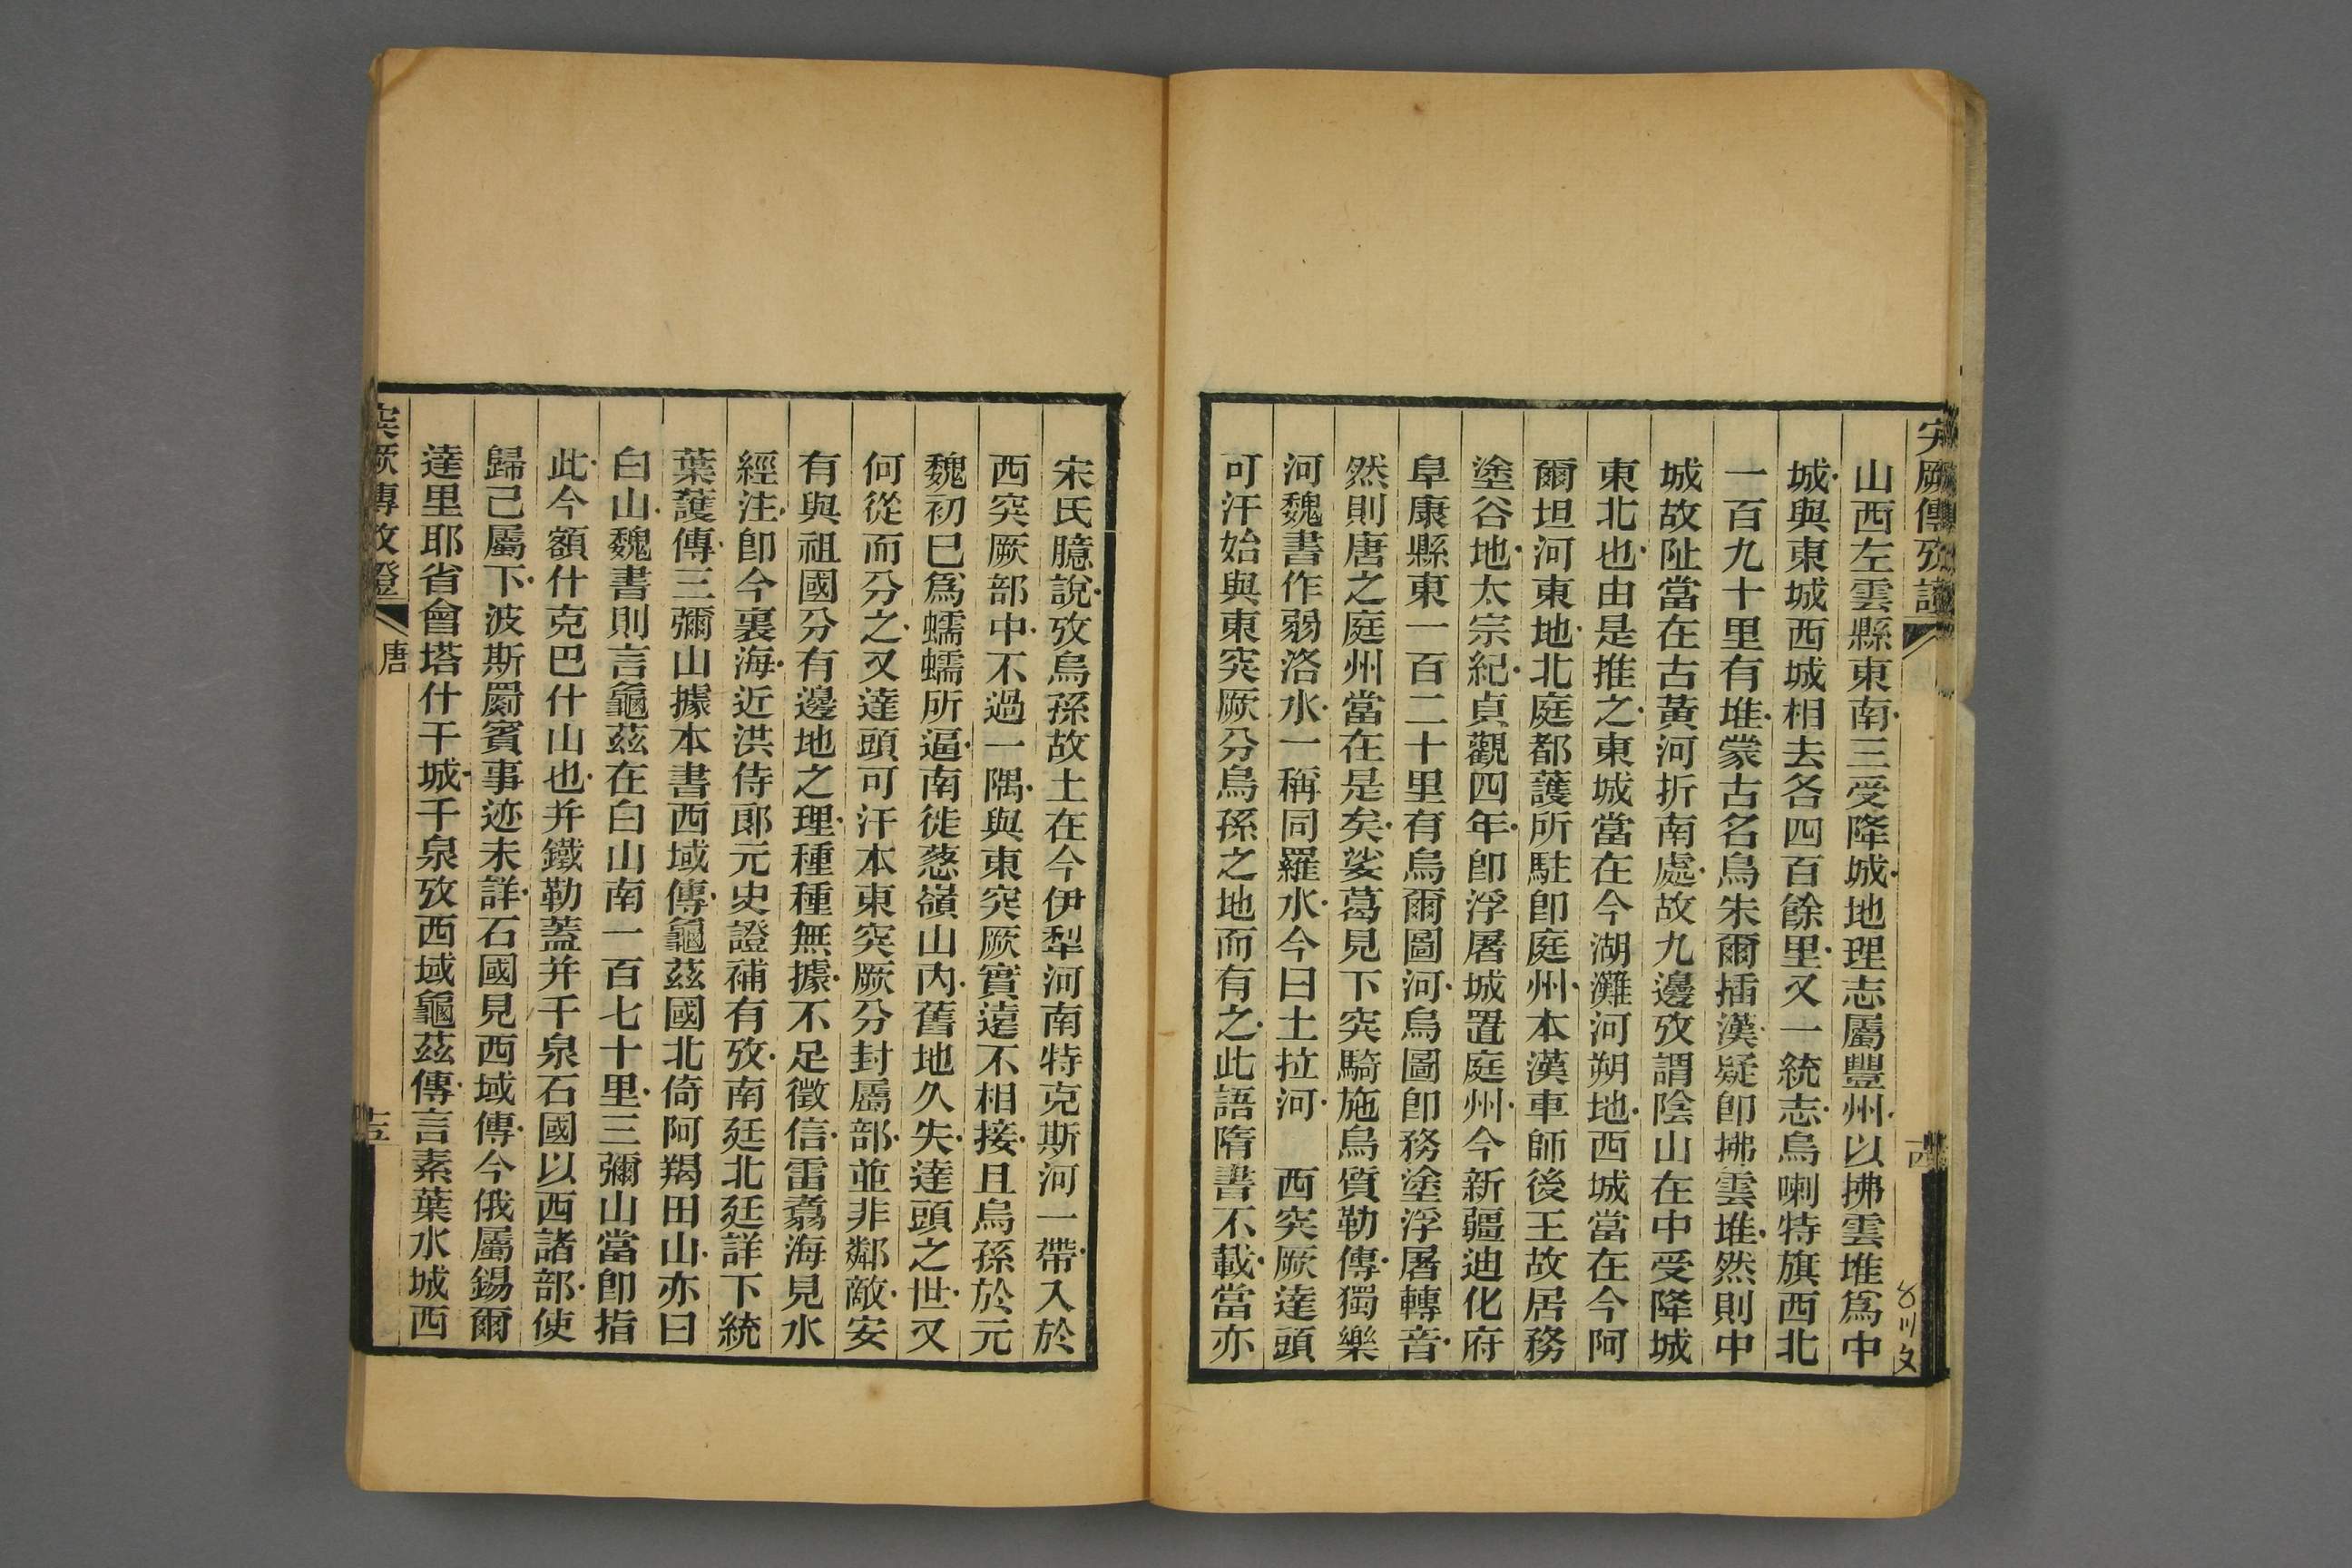 突厥傳攷證
山西左雲縣東南三受降城地理志屬豐州以拂雲堆爲中
城與東城西城相去各四百餘里又一統志烏喇特旗西北
一百九十里有堆蒙古名烏朱爾插漢疑卽拂雲堆然則中
城故阯當在古黃河折南處故九邊攷謂陰山在中受降城
東北也由是推之東城當在今湖灘河朔地西城當在今阿
爾坦河東地北庭都護所駐卽庭州本漢車師後王故居務
塗谷地太宗紀貞觀四年卽浮屠城置庭州今新疆迪化府
阜康縣東一百二十里有烏爾圖河烏圖卽務塗浮屠轉音
然則唐之庭州當在是矣娑葛見下突騎施烏質勒傳獨樂
河魏書作弱洛水一稱同羅水今曰土拉河　西突厥達頭
可汗始與東突厥分烏孫之地而有之此語隋書不載當亦
十四
宋氏臆說攷烏孫故土在今伊犁河南特克斯河一帶入於
西突厥部中不過一隅與東突厥實遠不相接且烏孫於元
魏初已爲蠕蠕所逼南徙蔥嶺山內舊地久失達頭之世又
何從而分之又達頭可汗本東突厥分封屬部並非鄰敵安
有與祖國分有邊地之理種種無據不足徵信雷翥海見水
經注卽今裏海近洪侍郎元史證補有攷南廷北廷詳下統
葉護傳三彌山據本書西域傳龜茲國北倚阿羯田山亦曰
白山魏書則言龜茲在白山南一百七十里三彌山當卽指
此今額什克巴什山也并鐵勒蓋并千泉石國以西諸部使
歸己屬下波斯罽賓事迹未詳石國見西域傳今俄屬錫爾
達里耶省會塔什干城千泉攷西域龜茲傳言素葉水城西
突厥傳攷證
唐
十五